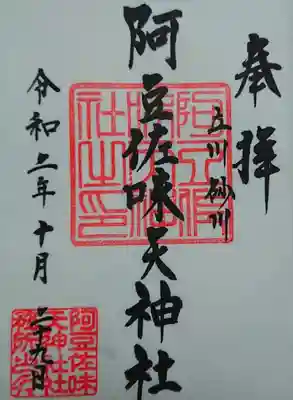 奉拝
立川砂川
阿豆佐味天神社
令和二年十月
二十九日
阿豆佐味
天神社社
務所之印